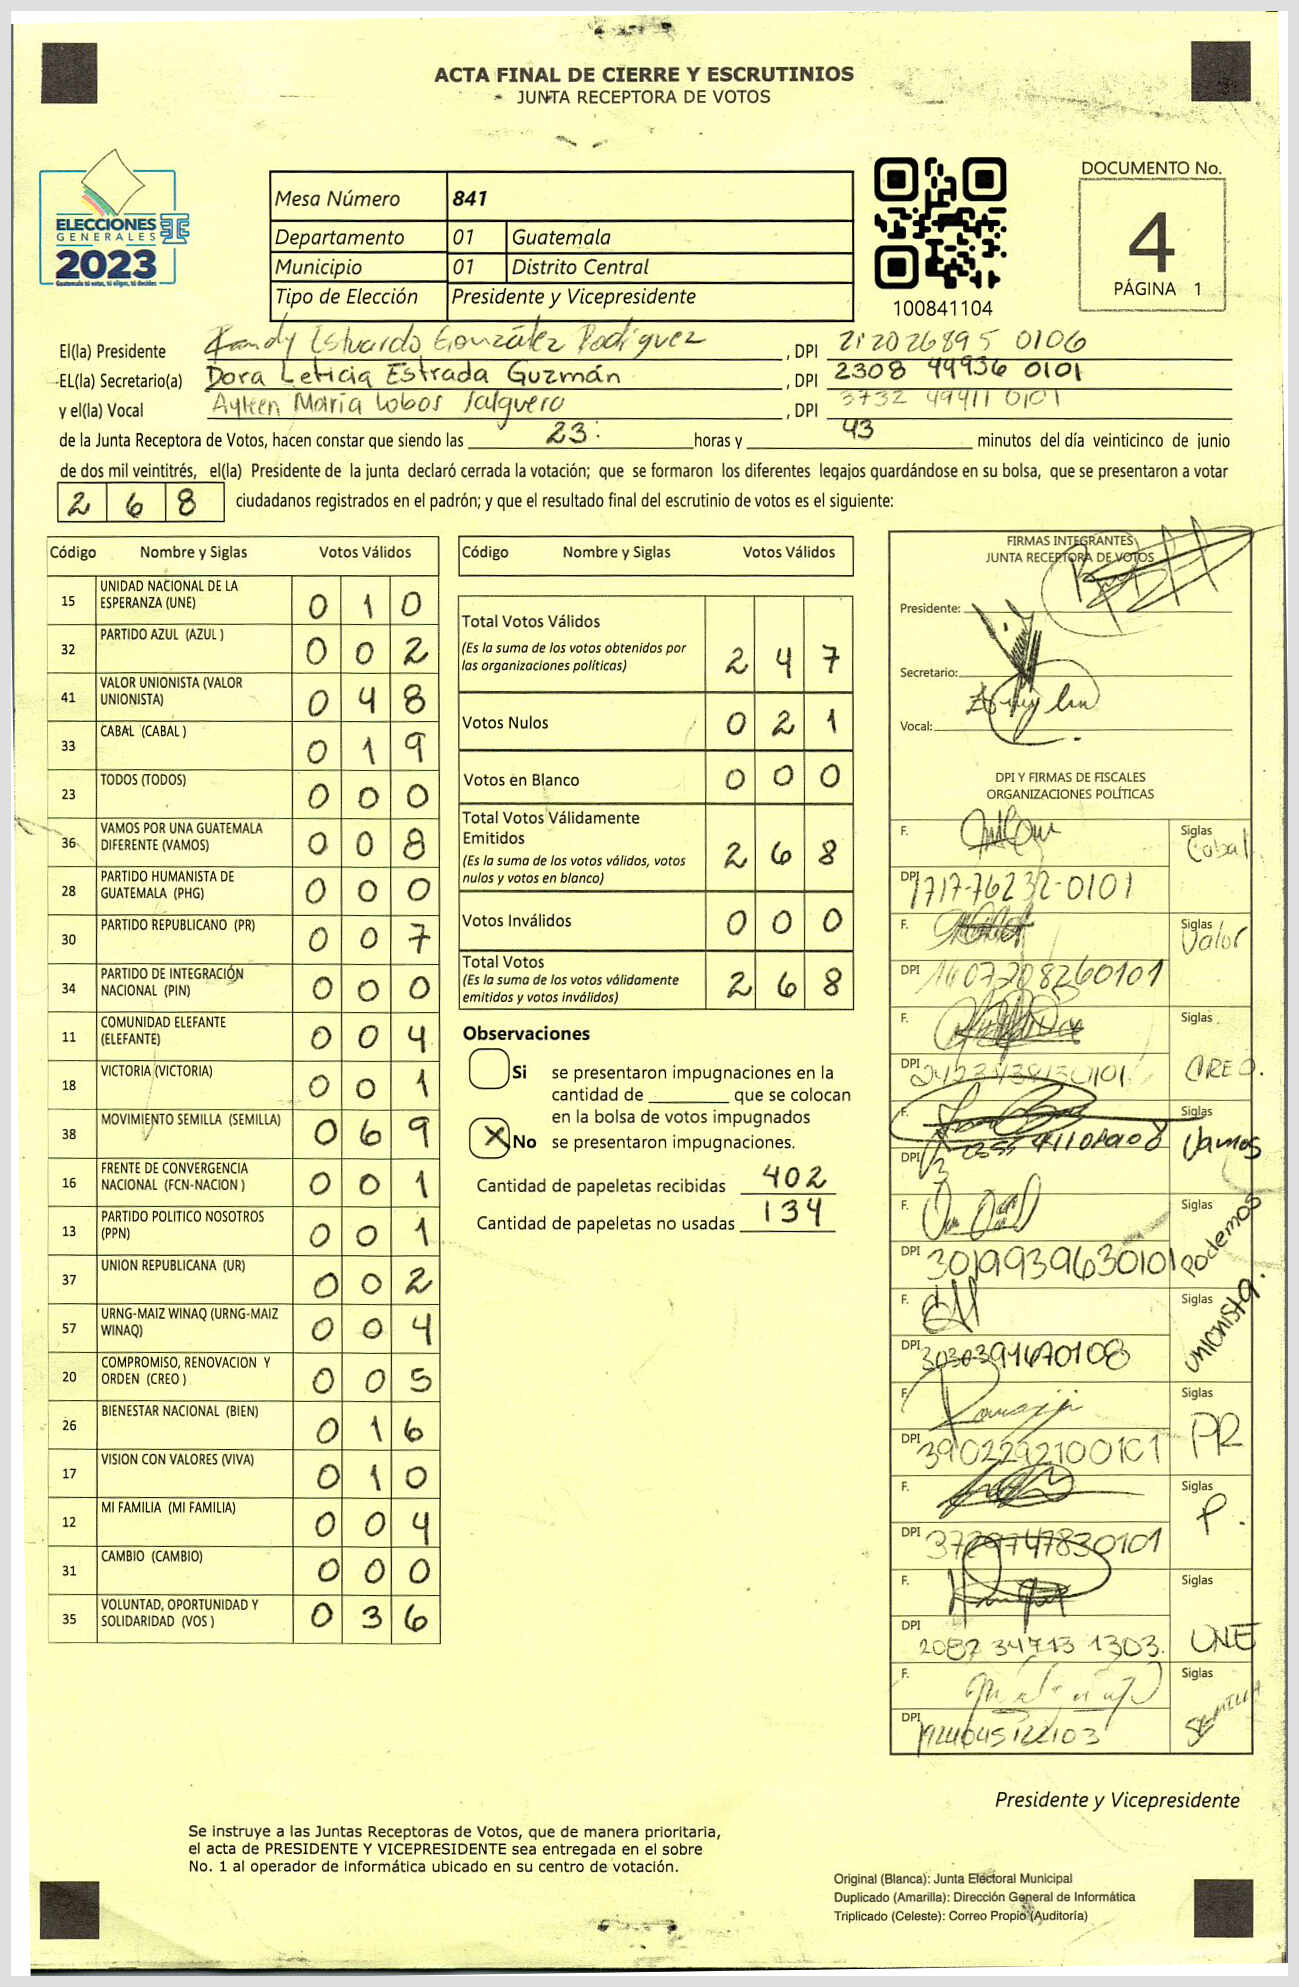 ACTA FINAL DE CIERRE Y ESCRUTINIOS
JUNTA RECEPTORA DE VOTOS
ELECCIONES
GENERALES
2023
Guatemala tú votas, tú eliges, tú decides
Mesa Número 841
Departamento 01 Guatemala
Municipio 01 Distrito Central
Tipo de Elección Presidente y Vicepresidente
100841104
DOCUMENTO No.
4
PÁGINA 1
El(la) Presidente Randy Estuardo González Rodríguez, DPI 212026895 0106
EL(la) Secretario(a) Dora Leticia Estrada Guzmán, DPI 2308 44936 0101
y el(la) Vocal Ayleen María Lobos Salguero, DPI 3732 49411 0101
de la Junta Receptora de Votos, hacen constar que siendo las 23: horas y 43 minutos del día veinticinco de junio
de dos mil veintitrés, el(la) Presidente de la junta declaró cerrada la votación; que se formaron los diferentes legajos guardándose en su bolsa, que se presentaron a votar
268 ciudadanos registrados en el padrón; y que el resultado final del escrutinio de votos es el siguiente:
Código Nombre y Siglas Votos Válidos
15 UNIDAD NACIONAL DE LA ESPERANZA (UNE) 0 1 0
32 PARTIDO AZUL (AZUL ) 0 0 2
41 VALOR UNIONISTA (VALOR UNIONISTA) 0 4 8
33 CABAL (CABAL ) 0 1 9
23 TODOS (TODOS) 0 0 0
36 VAMOS POR UNA GUATEMALA DIFERENTE (VAMOS) 0 0 8
28 PARTIDO HUMANISTA DE GUATEMALA (PHG) 0 0 0
30 PARTIDO REPUBLICANO (PR) 0 0 7
34 PARTIDO DE INTEGRACIÓN NACIONAL (PIN) 0 0 0
11 COMUNIDAD ELEFANTE (ELEFANTE) 0 0 4
18 VICTORIA (VICTORIA) 0 0 1
38 MOVIMIENTO SEMILLA (SEMILLA) 0 6 9
16 FRENTE DE CONVERGENCIA NACIONAL (FCN-NACION ) 0 0 1
13 PARTIDO POLITICO NOSOTROS (PPN) 0 0 1
37 UNION REPUBLICANA (UR) 0 0 2
57 URNG-MAIZ WINAQ (URNG-MAIZ WINAQ) 0 0 4
20 COMPROMISO, RENOVACION Y ORDEN (CREO ) 0 0 5
26 BIENESTAR NACIONAL (BIEN) 0 1 6
17 VISION CON VALORES (VIVA) 0 1 0
12 MI FAMILIA (MI FAMILIA) 0 0 4
31 CAMBIO (CAMBIO) 0 0 0
35 VOLUNTAD, OPORTUNIDAD Y SOLIDARIDAD (VOS ) 0 3 6
Código Nombre y Siglas Votos Válidos
Total Votos Válidos
(Es la suma de los votos obtenidos por
las organizaciones políticas) 2 4 7
Votos Nulos 0 2 1
Votos en Blanco 0 0 0
Total Votos Válidamente
Emitidos
(Es la suma de los votos válidos, votos
nulos y votos en blanco) 2 6 8
Votos Inválidos 0 0 0
Total Votos
(Es la suma de los votos válidamente
emitidos y votos inválidos) 2 6 8
Observaciones
Si se presentaron impugnaciones en la
cantidad de ________ que se colocan
en la bolsa de votos impugnados
X No se presentaron impugnaciones.
Cantidad de papeletas recibidas 402
Cantidad de papeletas no usadas 134
FIRMAS INTEGRANTES
JUNTA RECEPTORA DE VOTOS
Presidente:
Secretario:
Vocal:
DPI Y FIRMAS DE FISCALES
ORGANIZACIONES POLÍTICAS
F. Siglas Cabal
DPI 1717-76232-0101
F. Siglas Valor
DPI
F. Siglas CREO.
DPI
F. Siglas Vamos
DPI
F. Siglas Podemos
DPI 3019939630101
F. Siglas Unionista.
DPI 3030391670108
F. Siglas PR
DPI 3902292100101
F. Siglas P.
DPI 3729747830101
F. Siglas UNE
DPI 2087 34713 1303.
F. Siglas SEMILLA
DPI
Presidente y Vicepresidente
Se instruye a las Juntas Receptoras de Votos, que de manera prioritaria,
el acta de PRESIDENTE Y VICEPRESIDENTE sea entregada en el sobre
No. 1 al operador de informática ubicado en su centro de votación.
Original (Blanca): Junta Electoral Municipal
Duplicado (Amarilla): Dirección General de Informática
Triplicado (Celeste): Correo Propio (Auditoría)